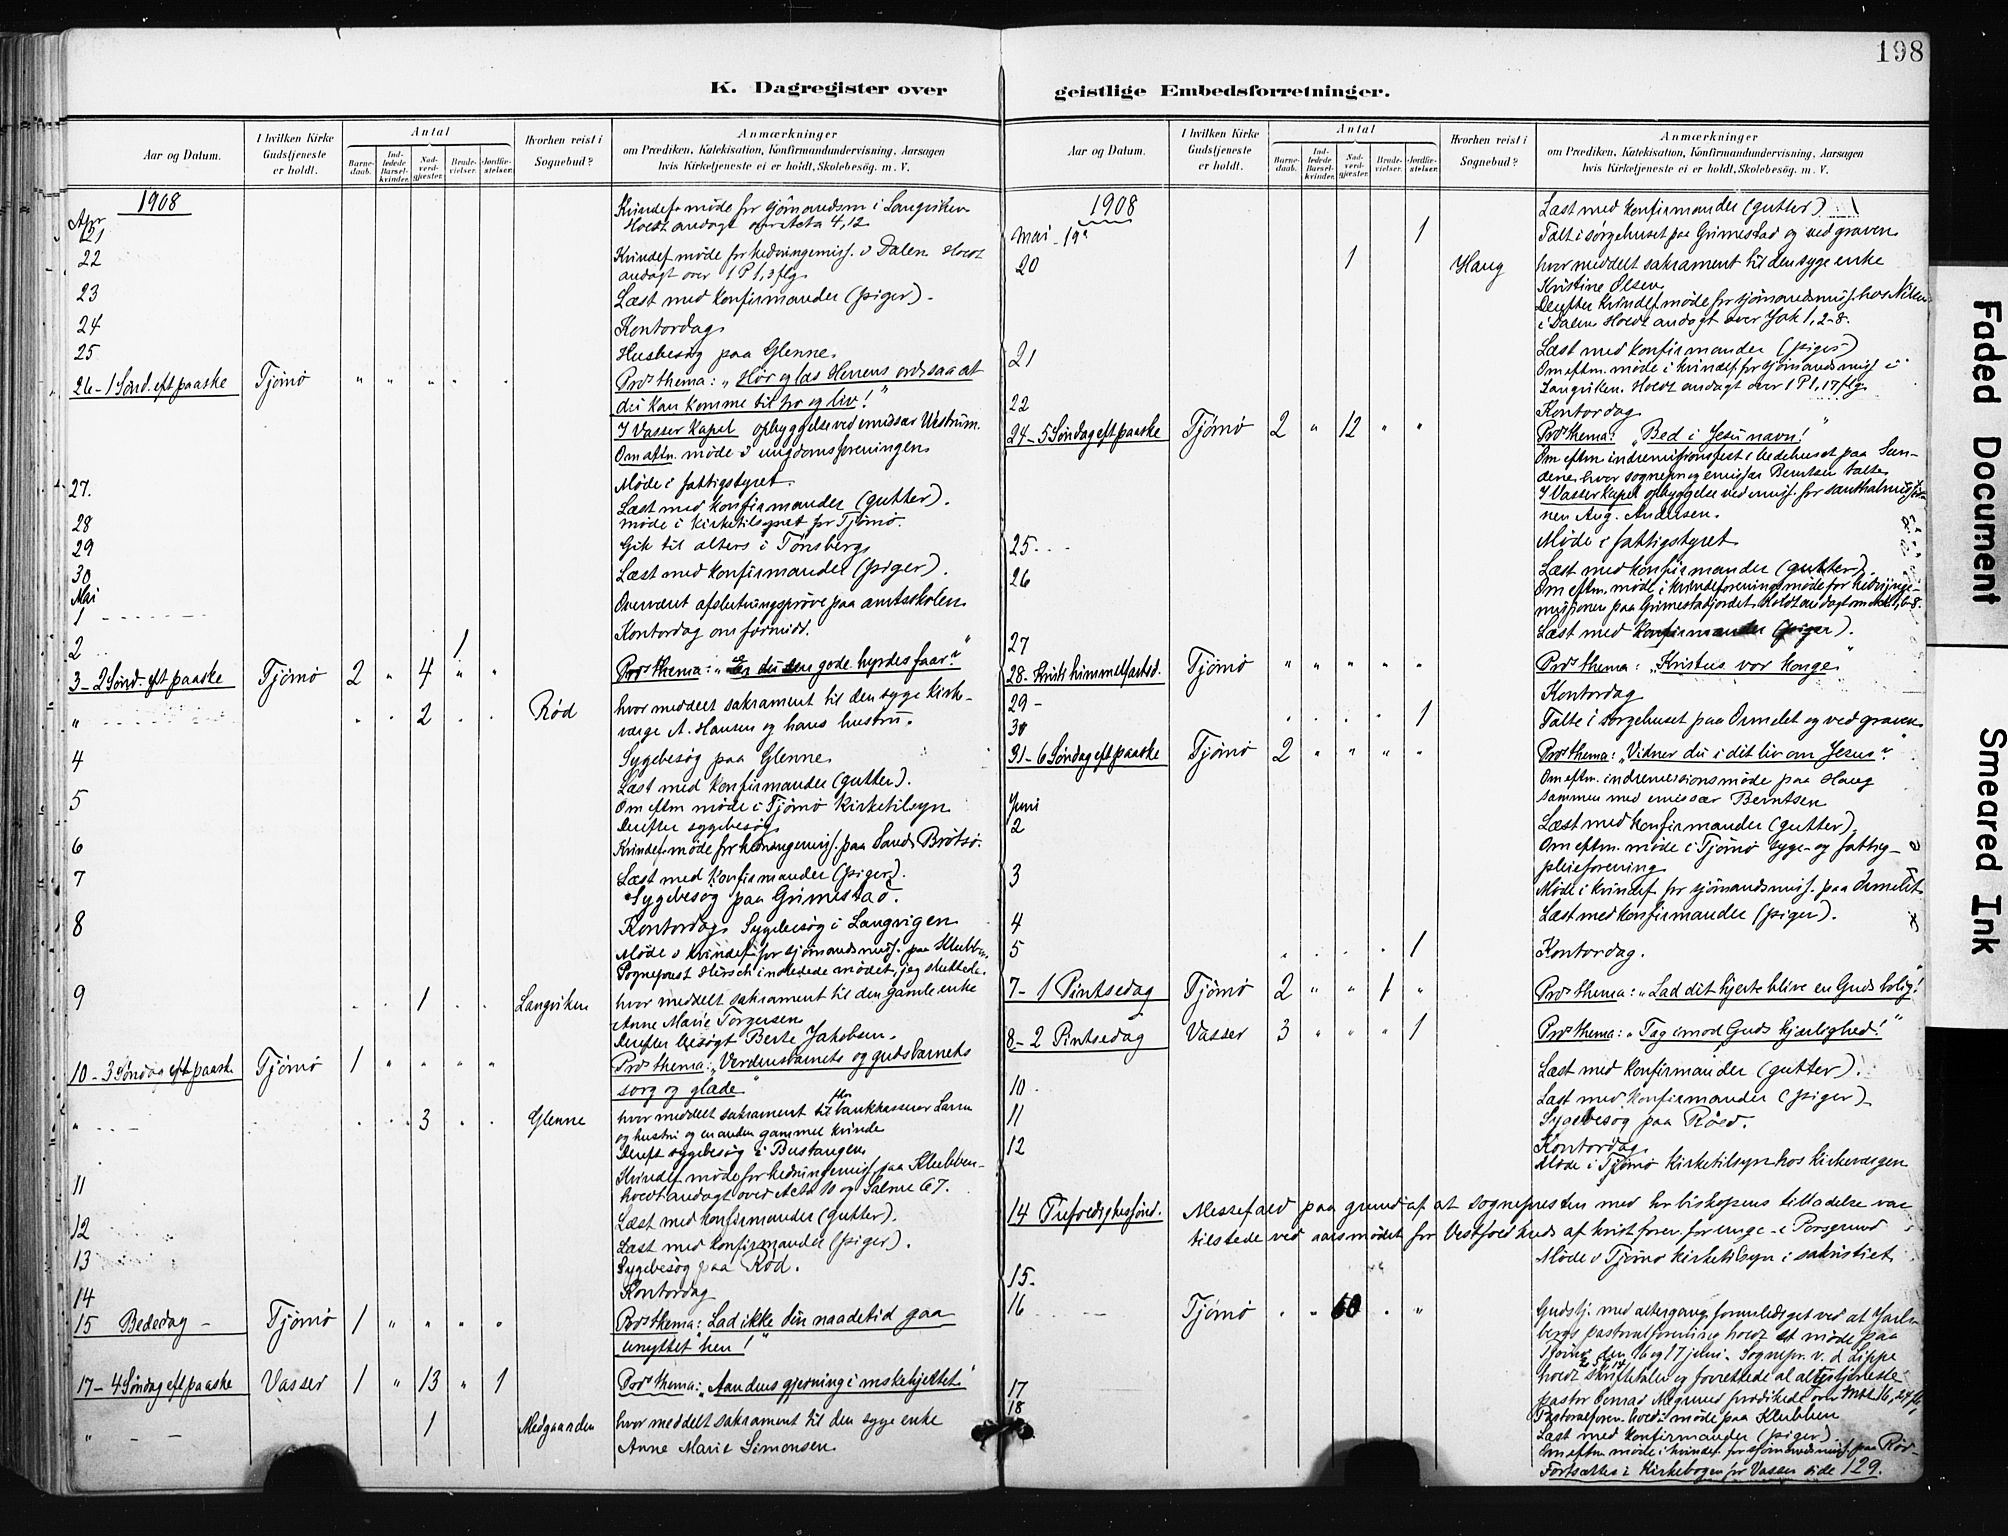 198
K. Dagregister over geistlige Embedsforretninger.
Aar og Datum.
I hvilken Kirke Gudstjeneste er holdt.
Antal
Barnedaab.
Indledede Barselkvinder.
Nadverdgjester.
Brudevielser.
Jordfæstelser.
Hvorhen reist i Sognebud?
Anmærkninger
om Prædiken, Katekisation, Konfirmandundervisning, Aarsagen
hvis Kirketjeneste ei er holdt, Skolebesøg. m. V.
1908
Apr
21 Kvindef. møde for sjømandsm i Langviken
Holdt andagt over Acta 4,12
22 Kvindef møde for hedningemis. i Dalen Holdt
andagt over 1 P 1,3 flg
23 Læst med konfirmander (piger).
24 Kontordag
25 Husbesøg paa Glenne
26 - 1 Sønd. eft paaske Tjømø " " " " " Præd thema: "Hør og læs Herrens ord saa at
du kan komme til tro og liv!"
I Vasser kapel opbyggelse ved emissær Westrum.
Om aftn. møde i ungdomsforeningen
27. Møde i fattigstyret
Læst med konfirmander (gutter).
28 møde i kirketilsynet for Tjømø.
29 Gik til alters i Tønsberg
30 Læst med konfirmander (piger).
Mai
1 Overværet afslutningsprøve paa amtsskolen
2 1 Kontordag om formidd.
3 - 2 Sønd. eft paaske Tjømø 2 " 4 " " Præd thema: "Er du den gode hyrdes faar?"
" 2 Rød hvor meddelt sakrament til den syge kirke-
værge A. Hansen og hans hustru.
4 Sygebesøg paa Glenne
Læst med konfirmander (gutter).
5 Om eftm møde i Tjømø kirketilsyn
Derefter sygebesøg
6 Kvindef. møde for hedningemis. paa Sand Brøtsø.
7 Læst med konfirmander (piger).
Sygebesøg paa Grimestad.
8 Kontordag Sygebesøg i Langvigen
Møde i kvindef. for sjømandsmis. paa Klubben
Sogneprest Hirsch indledede mødet, jeg sluttede.
9 1 Langviken hvor meddelt sakrament til den gamle enke
Anne Marie Torgersen
Derefter besøgt Berte Jakobsen.
10 - 3 Søndag eft paaske Tjømø 1 " " " " Præd thema: "Verdensbarnets og gudsbarnets
sorg og glæde"
" 3 Glenne hvor meddelt sakrament til fhv bankkasserer Larsen
og hustru og en anden gammel kvinde
Dereft sygebesøg i Bustangen
11 Kvindef. møde for hedningemis. paa Klubben -
holdt andagt over Acta 10 og Salme 67.
12 Læst med konfirmander (gutter).
13 Læst med konfirmander (piger).
Sygebesøg paa Rød.
14 Kontordag
15 Bededag - Tjømø 1 " " " " Præd thema: Lad ikke din naadetid gaa
unyttet hen!"
17 - 4 Søndag eft paaske Vasser 1 " 13 " 1 Præd thema: "Aandens gjerning i mskehjertet!
" 1 Medgaarden hvor meddelt sakrament til den syge enke
Anne Marie Simonsen
Aar og Datum.
I hvilken Kirke Gudstjeneste er holdt.
Antal
Barnedaab.
Indledede Barselkvinder.
Nadverdgjester.
Brudevielser.
Jordfæstelser.
Hvorhen reist i Sognebud?
Anmærkninger
om Prædiken, Katekisation, Konfirmandundervisning, Aarsagen
hvis Kirketjeneste ei er holdt, Skolebesøg. m. V.
1908
Læst med konfirmander (gutter)
Mai 19 1 Talt i sørgehuset paa Grimestad og ved graven
20 1 Haug hvor meddelt sakrament til den syge enke
Kristine Olsen
Derefter kvindef. møde for sjømandsmis. hos
i Dalen Holdt andagt over Jak 1, 2-8.
21 Læst med konfirmander (piger)
Om eftm. møde i kvindef. for sjømandsmis i
Langviken. Holdt andagt over 1 P 1, 17 flg
22 Kontordag
24 - 5 Søndag eft paaske Tjømø 2 " 12 " " Præd thema: "Bed i Jesu navn!"
Om eftm indremissionsfest i bedehuset paa Sun-
dene, hvor sognepr og emissær Berntsen talte
I Vasser kapel opbyggelse ved emis. for santhalmissio-
nen Aug. Andersen.
25 Møde i fattigstyret
26 Læst med konfirmander (gutter).
Om eftm. møde i kvindeforeningsmøde for hedninge-
missionen paa Grimestadfjordet
27 Læst med konfirmander (piger).
28. Kristi himmelfartsd. Tjømø " " " " " Præd thema: "Kristus vor konge"
29 - Kontordag
30 1 Talte i sørgehuset paa Ormelet og ved graven
31 - 6 Søndag eft paaske Tjømø 2 " " " " Præd thema: "Vidner du i dit liv om Jesus?"
Om eftm. indremissionsmøde paa Haug
sammen med emissær Berntsen
Juni
2 Læst med konfirmander (gutter).
Om eftm. møde i Tjømø syge- og fattig-
pleieforening
3 Møde i kvindef for sjømandsmis. paa Ormelet
4 Læst med konfirmander (piger).
5 1 Kontordag.
7 - 1 Pintsedag Tjømø 2 " " 1 " Præd thema: "Lad dit hjerte blive en Guds bolig!"
8 - 2 Pintsedag Vasser 3 " " " 1 Præd thema: "Tag imod Guds kjærlighed!"
10 Læst med konfirmander (gutter).
11 Læst med konfirmander (piger)
Sygebesøg paa Røed.
12 Kontordag
Møde i Tjømø kirketilsyn hos kirkeværgen
14 Trefoldighedssønd. Messefald paa grund af at sognepresten med hr biskopens tilladelse var
tilstede ved aarsmødet for Vestfold kreds af krist. foren. for unge i Porsgrund
15. Møde i Tjømø kirketilsyn i sakristiet
16 Tjømø " " 60 " " Gudstj. med altergang foranlediget ved at Jarls-
bergs pastoralforening holdt et møde paa
Tjømø den 16 og 17 juni. Sognepr. v. d. Lippe
holdt skriftetalen og forrettede al altertjeneste
pastor Conrad prædikede over Mt 16, 24 flg
17 Pastoralforen. holdt møde paa Klubben
18 Læst med konfirmander (piger)
Om eftm møde i kvindef. for sjømandsmis. paa Rød -
Fortsættes i Kirkebogen for Vasser side 129.
Faded Document
Smeared Ink